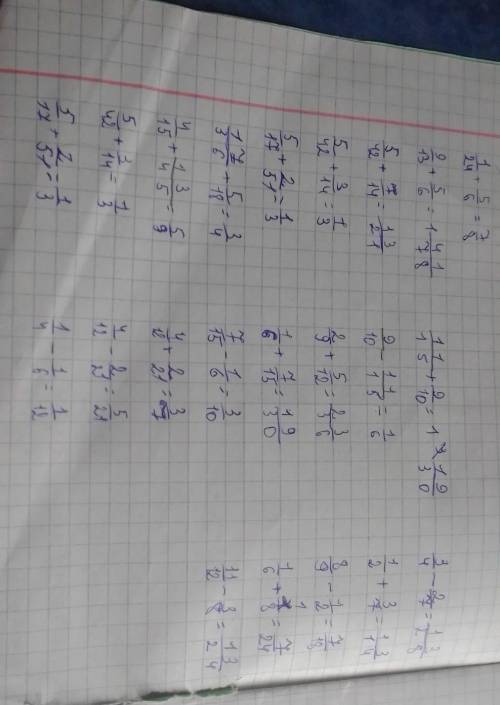 1/24 + 5/6 = 7/8
9/13 + 5/6 = 1 41/78
5/42 + 7/14 = 13/21
5/42 + 3/14 = 1/3
5/17 + 2/51 = 1/3
17/36 + 5/18 = 3/4
4/15 + 13/45 = 5/9
5/42 + 3/14 = 1/3
5/17 + 2/51 = 1/3
11/15 + 9/10 = 1 19/30
9/10 - 11/15 = 1/6
2/9 + 5/12 = 23/36
1/6 + 7/15 = 19/30
7/15 - 1/6 = 3/10
4/12 + 2/21 = 3/7
4/12 - 2/21 = 5/21
1/4 - 1/6 = 1/12
3/4 - 2/7 = 13/28
1/2 + 3/7 = 13/14
8/9 - 1/2 = 7/18
1/6 + 1/8 = 7/24
11/12 - 3/8 = 13/24